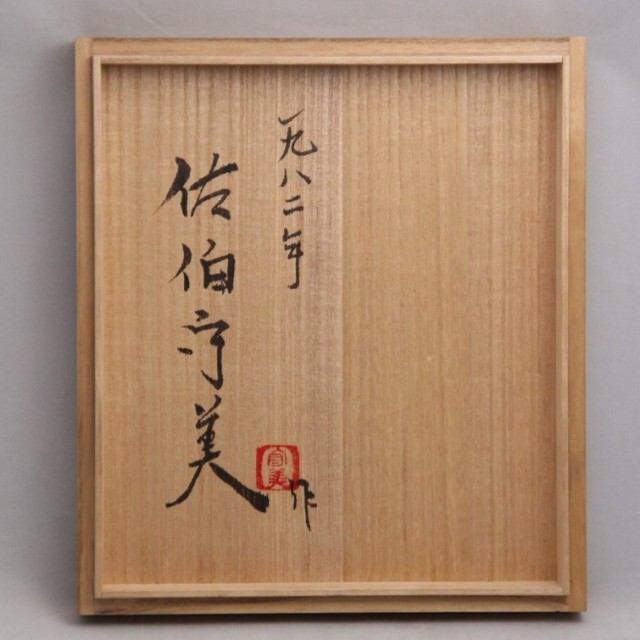 一九八二年
佐伯守美
作
守美